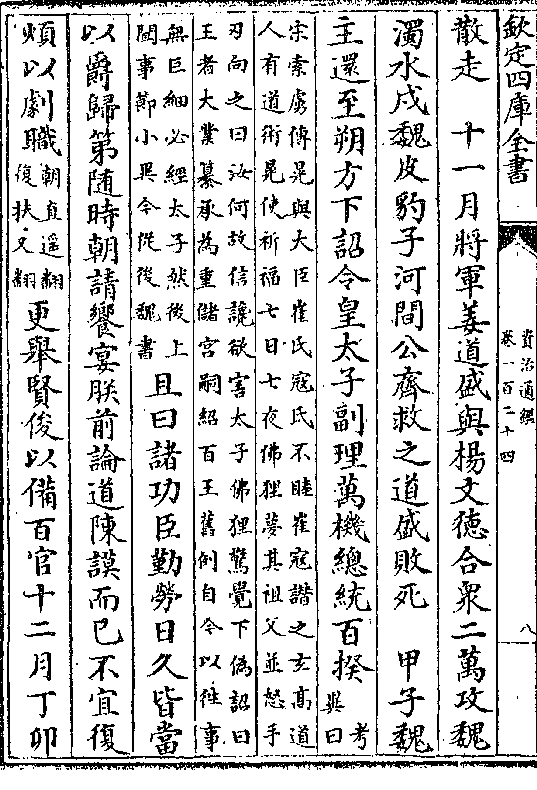 欽定四庫全書
資治通鑑
卷一百二十四
八
散走　十一月將軍姜道盛與楊文德合衆二萬攻魏
濁水戍魏皮豹子河間公齊救之道盛敗死　甲子魏
主還至朔方下詔令皇太子副理萬機總統百揆考異曰
宋索虜傳晃與大臣崔氏寇氏不睦崔寇譖之玄高道
人有道術晃使祈福七日七夜佛狸夢其祖父並怒手
刃向之曰汝何故信讒欲害太子佛狸驚覺下偽詔曰
王者大業纂承為重儲宮嗣紹百王舊例自今以往事
無巨細必經太子然後上
聞事節小異今從後魏書
且曰諸功臣勤勞日久皆當
以爵歸第随時朝請饗宴朕前論道陳謨而已不宜復
煩以劇職朝直遥翻復扶又翻更舉賢俊以備百官十二月丁卯